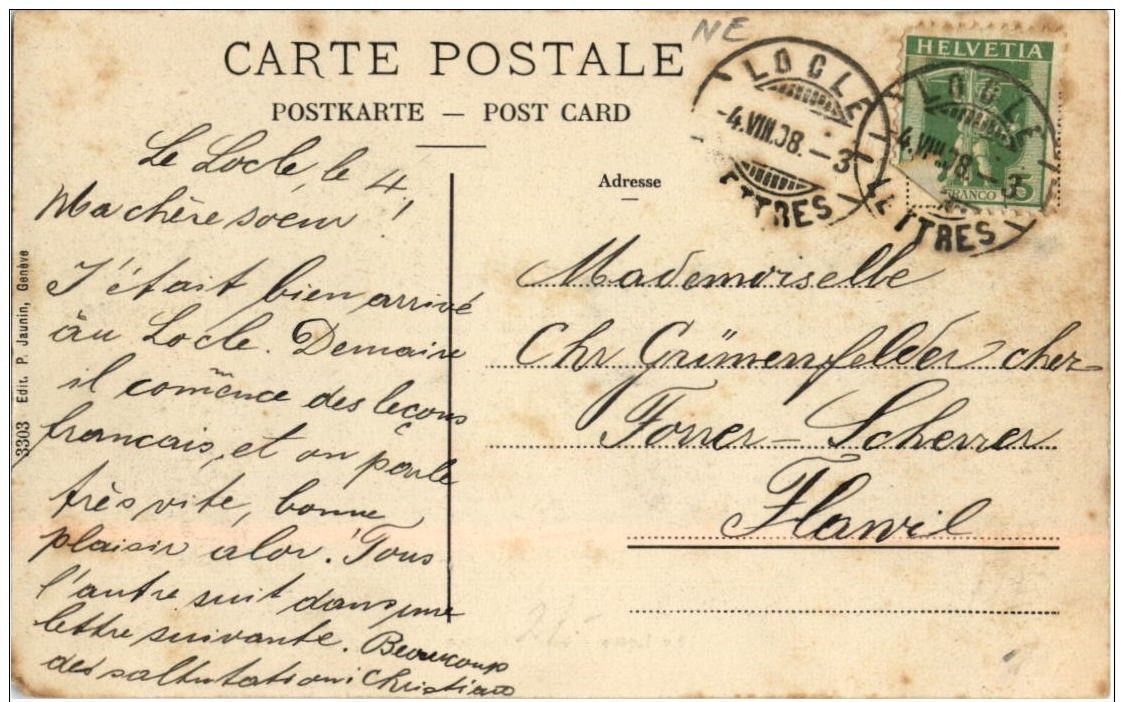 NE
CARTE POSTALE
POSTKARTE — POST CARD
LOCLE
-4.VIII.08.-3
LETTRES
LOCLE
4.VIII.08.-3
LETTRES
HELVETIA
FRANCO 5
Adresse
3303 Edit. P. Jaunin, Genève
Le Locle, le 4,
Ma chère soeur
J'était bien arrivé
au Locle. Demaire
il comence des leçons
francais, et on parle
très vite, bonne
plaisir alor. Tous
l'autre suit dans une
lettre suivante. Beaucoup
des saltutationi Christian
Mademoiselle
Chr Grümenfelder cher-
Forrer-Scherrer
Flawil